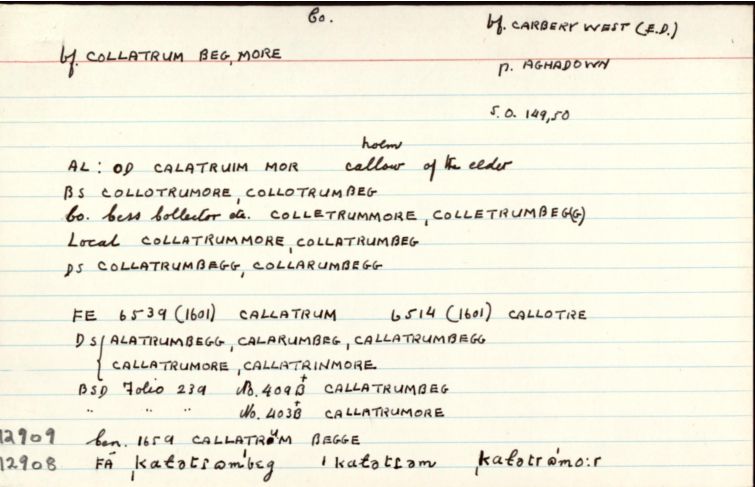 Co.
bf. CARBERY WEST (E.D.)
bf. COLLATRUM BEG, MORE
p. AGHADOWN
S.O. 149,50
holm
AL: OD CALATRUIM MOR callow of the elder
BS COLLOTRUMORE, COLLOTRUMBEG
Co. Cess Collector etc. COLLETRUMMORE, COLLETRUMBEG(G)
Local COLLATRUMMORE, COLLATRUMBEG
DS COLLATRUMBEGG, COLLARUMBEGG
FE 6539 (1601) CALLATRUM 6514 (1601) CALLOTRE
DS { ALATRUMBEGG, CALARUMBEG, CALLATRUMBEGG
CALLATRUMORE, CALLATRINMORE
BSD Folio 239 No. 409B CALLATRUMBEG
" " " No. 403B CALLATRUMORE
12909 Cen. 1659 CALLATRUM BEGGE
12908 FÁ